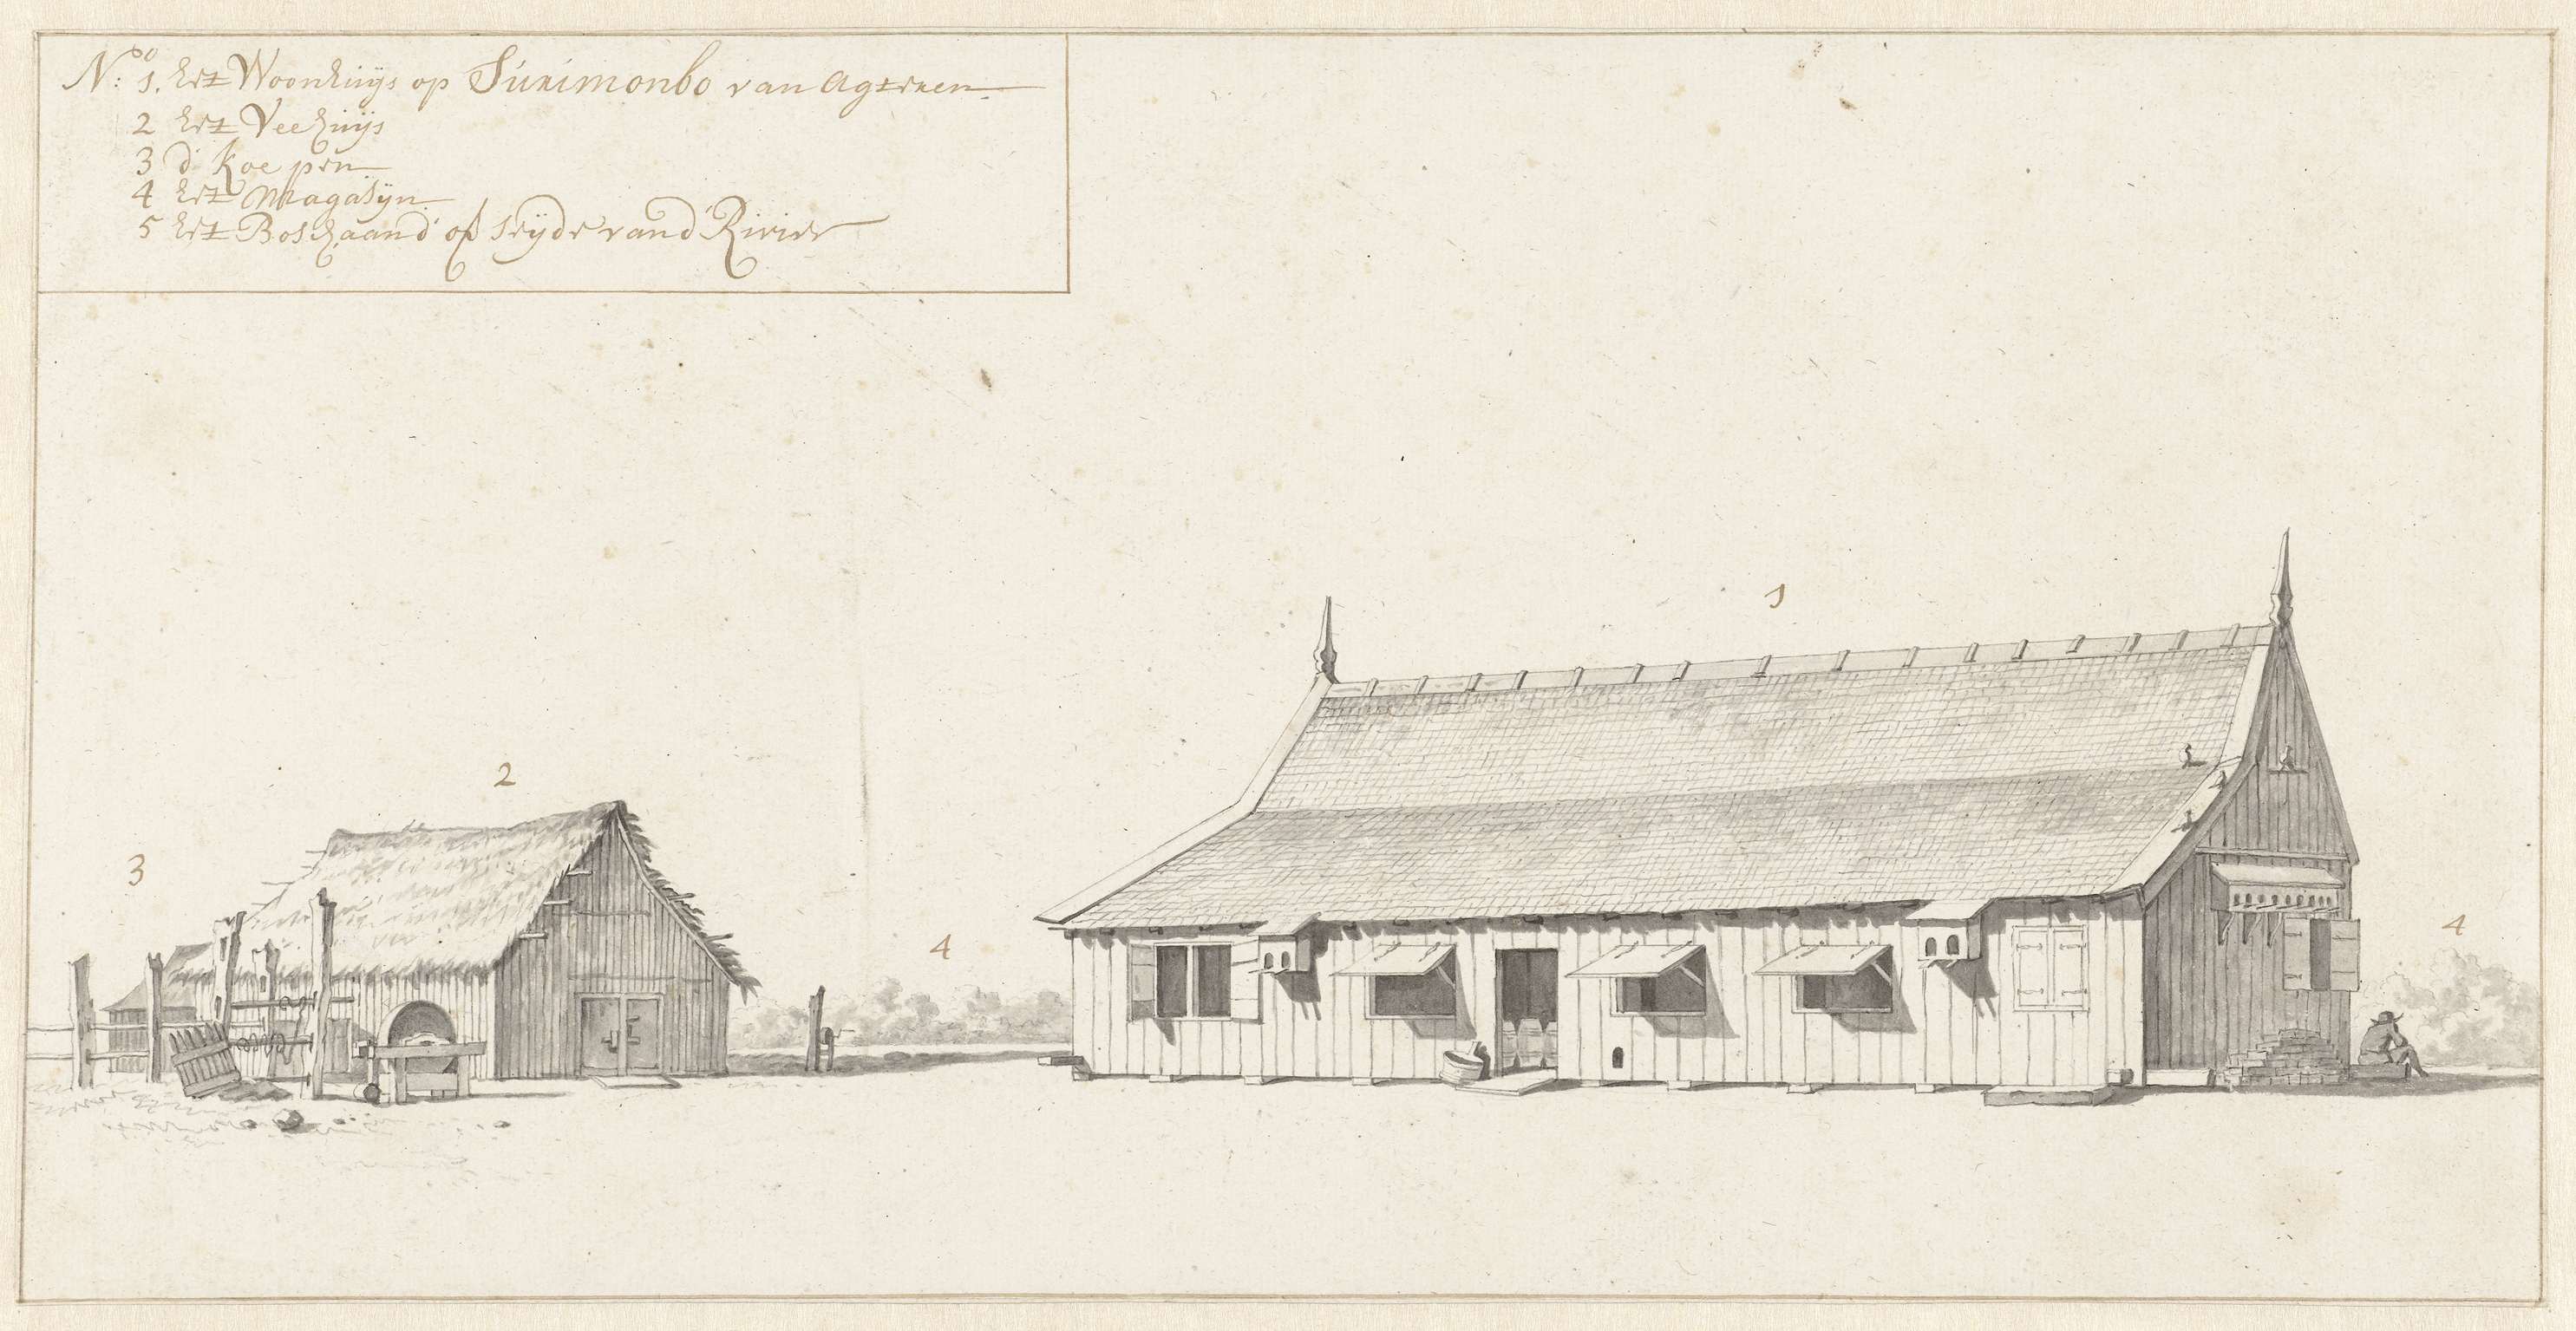 No: 1. het Woonhuijs op Surimonbo van agteren
2 het Veehuijs
3 d' Koe pen
4 het Magasijn
5 het Bos haand' of seijde vand' Rivier
1
2
3
4
4